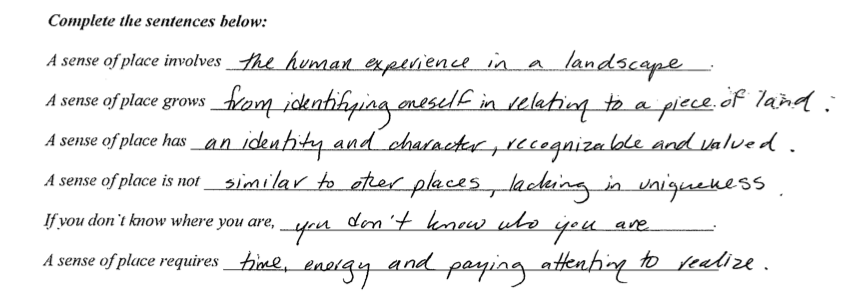 Complete the sentences below:
A sense of place involves the human experience in a landscape.
A sense of place grows from identifying oneself in relation to a piece of land.
A sense of place has an identity and character, recognizable and valued.
A sense of place is not similar to other places, lacking in uniqueness.
If you don't know where you are, you don't know who you are.
A sense of place requires time, energy and paying attention to realize.